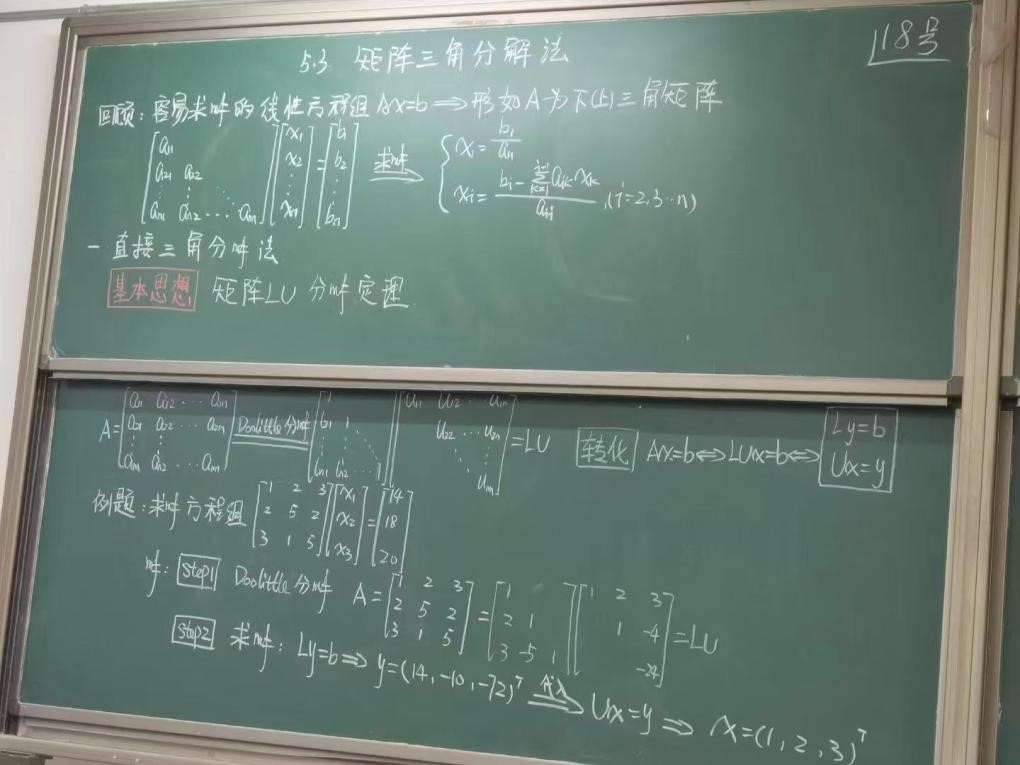 18号
5.3 矩阵三角分解法
回顾：容易求解的线性方程组 Ax=b ⇒ 形如A为下(上)三角矩阵
[a₁₁; a₂₁ a₂₂; ⋮ ⋮ ⋱; aₙ₁ aₙ₂ … aₙₙ][x₁; x₂; ⋮; xₙ]=[b₁; b₂; ⋮; bₙ] 求解⇒ { x₁=b₁/a₁₁ ; xᵢ=(bᵢ-∑_{k=1}^{i-1}aᵢₖxₖ)/aᵢᵢ ,(i=2,3…n)
一 直接三角分解法
基本思想 矩阵LU分解定理
A=[a₁₁ a₁₂ … a₁ₙ; a₂₁ a₂₂ … a₂ₙ; ⋮ ⋮; aₙ₁ aₙ₂ … aₙₙ] Doolittle分解 [1; l₂₁ 1; ⋮ ⋱; lₙ₁ lₙ₂ … 1][u₁₁ u₁₂ … u₁ₙ; u₂₂ … u₂ₙ; ⋱ ⋮; uₙₙ]=LU 转化 Ax=b⇔LUx=b⇔ Ly=b Ux=y
例题：求解方程组 [1 2 3; 2 5 2; 3 1 5][x₁; x₂; x₃]=[14; 18; 20]
解：step1 Doolittle分解 A=[1 2 3; 2 5 2; 3 1 5]=[1; 2 1; 3 -5 1][1 2 3; 1 -4; -24]=LU
step2 求解：Ly=b⇒y=(14,-10,-72)ᵀ 代入⇒ Ux=y ⇒ x=(1,2,3)ᵀ